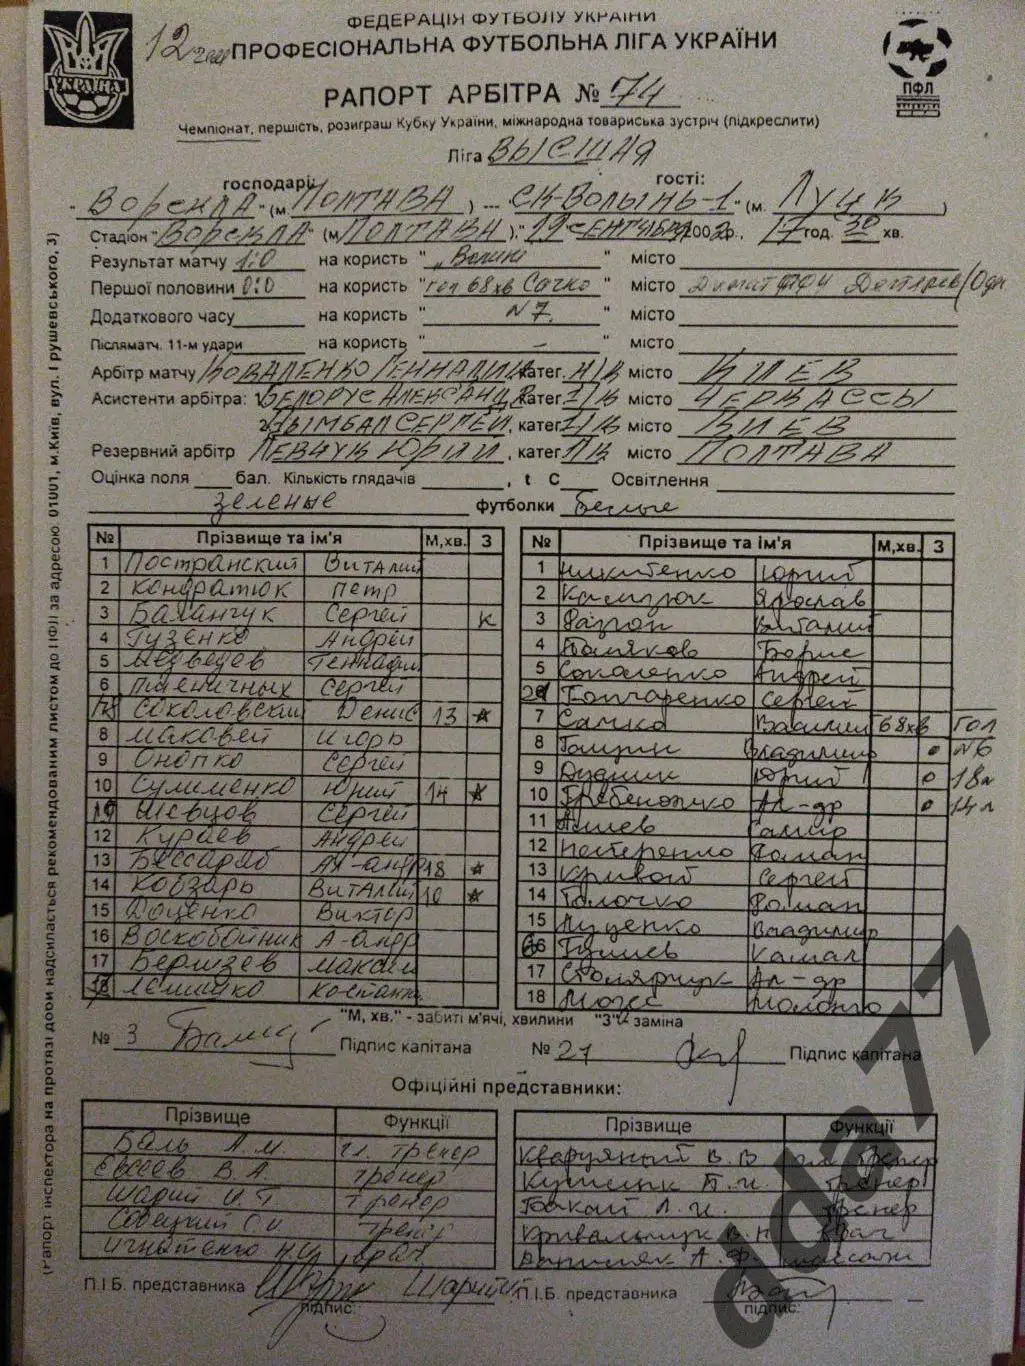 ФЕДЕРАЦІЯ ФУТБОЛУ УКРАЇНИ
12
ПРОФЕСІОНАЛЬНА ФУТБОЛЬНА ЛІГА УКРАЇНИ
УКРАЇНА
ПФЛ
РАПОРТ АРБІТРА № 74
Чемпіонат, першість, розиграш Кубку України, міжнародна товариська зустріч (підкреслити)
Ліга ВЫСШАЯ
господарі: гості:
"ВОРСКЛА" (м. ПОЛТАВА) --- СК-ВОЛЫНЬ-1" (м. ЛУЦК)
Стадіон "ВОРСКЛА" (м. ПОЛТАВА), "19 СЕНТЯБРЯ 2002р. 17 год. 30 хв.
Результат матчу 1:0 на користь "Волині" місто
Першої половини 0:0 на користь "гол 68хв Сачко" місто
Додаткового часу на користь "N7" місто
Післяматч. 11-м удари на користь " – " місто
Арбітр матчу КОВАЛЕНКО ГЕННАДИЙ, катег. місто КИЕВ
Асистенти арбітра: 1. БЕЛОРУС АЛЕКСАНДР, катег. місто ЧЕРКАССЫ
2. ЦЫМБАЛ СЕРГЕЙ, катег. місто КИЕВ
Резервний арбітр ЛЕВЧУК ЮРИЙ, катег. місто ПОЛТАВА
Оцінка поля бал. Кількість глядачів , t С Освітлення
зеленые футболки белые
№ Прізвище та ім'я М,хв. З
1 Постранский Виталий
2 Кондратюк Петр
3 Баланчук Сергей К
4 Гузенко Андрей
5 Медведев Геннадий
6 Пшеничных Сергей
Соколовский Денис 13
8 Маковей Игорь
9 Онопко Сергей
10 Сулименко Юрий 14
Шевцов Сергей
12 Кураев Андрей
13 Бессараб Ал-андр 18
14 Кобзарь Виталий 10
15 Доценко Виктор
16 Воскобойник А-андр
17 Березев Максим
№ Прізвище та ім'я М,хв. З
1 Никитенко Юрий
2 Камзюк Ярослав
3 Разгон Виталий
4 Поляков Борис
5 Соколенко Андрей
Гончаренко Сергей
7 Сачко Василий 68хв ГОЛ
8 Гащин Владимир N6
9 Дудник Юрий 18
10 Гребеножко Ал-др 14
11 Алиев Самир
12 Нестеренко Роман
13 Кривой Сергей
14 Толочко Роман
15 Луценко Владимир
16 Гулиев Камал
17 Столярчук Ал-др
18
"М, хв." - забиті м'ячі, хвилини "З" - заміна
№ 3 Підпис капітана № 21 Підпис капітана
Офіційні представники:
Прізвище Функції
Баль А.М. гл. тренер
Евсеев В.А. тренер
Шарий И.Г. тренер
Собецкий С.И. тренер
Игнатенко врач
Прізвище Функції
Кварцяный В.В гл. тренер
Кушицк П.И. тренер
тренер
врач
массажи
П.І.Б. представника Шарий підпис:
П.І.Б. представника підпис:
(Рапорт інспектора на протязі доби надсилається рекомендованим листом до ПФЛ за адресою: 01001, м.Київ, вул. Грушевського, 3)
dda77